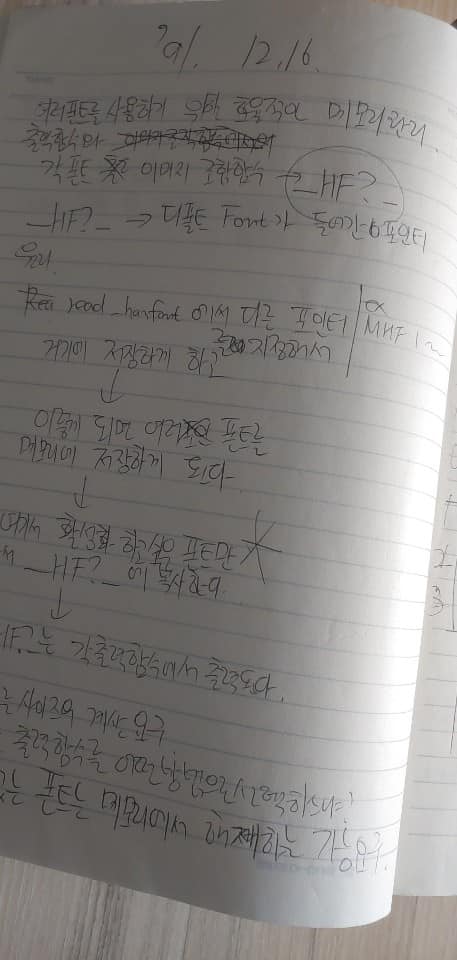 '91. 12.16.
여러폰트를 사용하기 위한 효율적인 메모리관리.
출력함수와
각 폰트 이미지 조합함수 → __HF?_
__HF?_ → 디폴트 Font가 들어간 포인터
우리
read_hanfont 에서 다른 포인터
MHF1~
지정해서
거기에 저장하게 하고
↓
이렇게 되면 여러 폰트를
메모리에 저장하게 되다.
↓
여기서 활성화 하고싶은 폰트만
__HF?_ 에 복사한다.
↓
HF?_는 각출력함수에서 출력되다.
는 사이즈의 계산 요구
출력함수를 어떤방법으로 선택하느냐?
있는 폰트는 메모리에서 해제하는 기능요구.